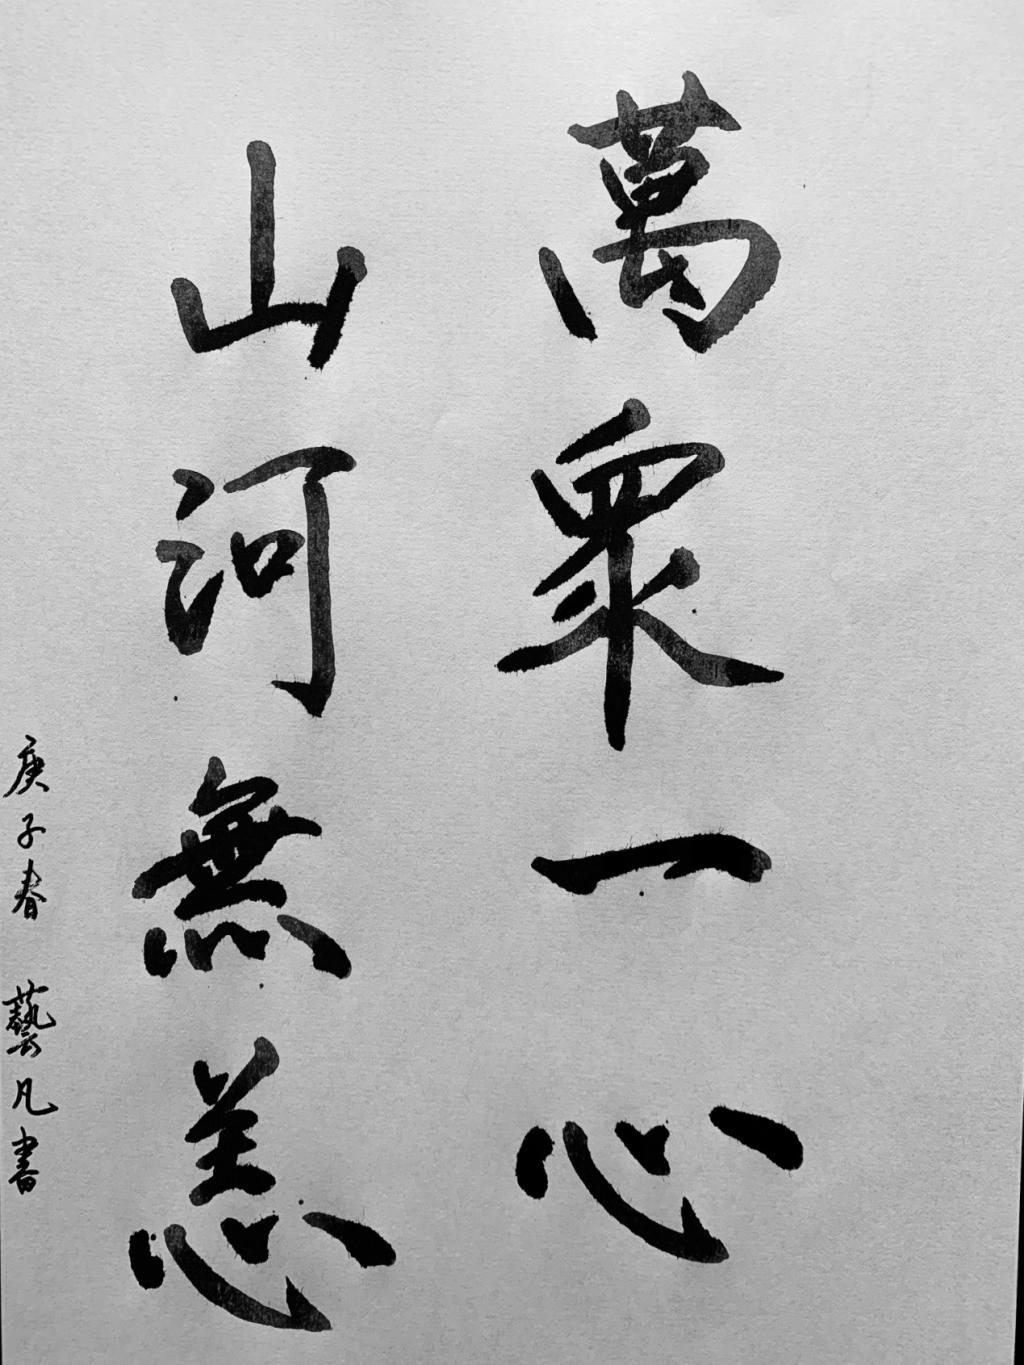 萬眾一心
山河無恙
庚子春 藝凡書